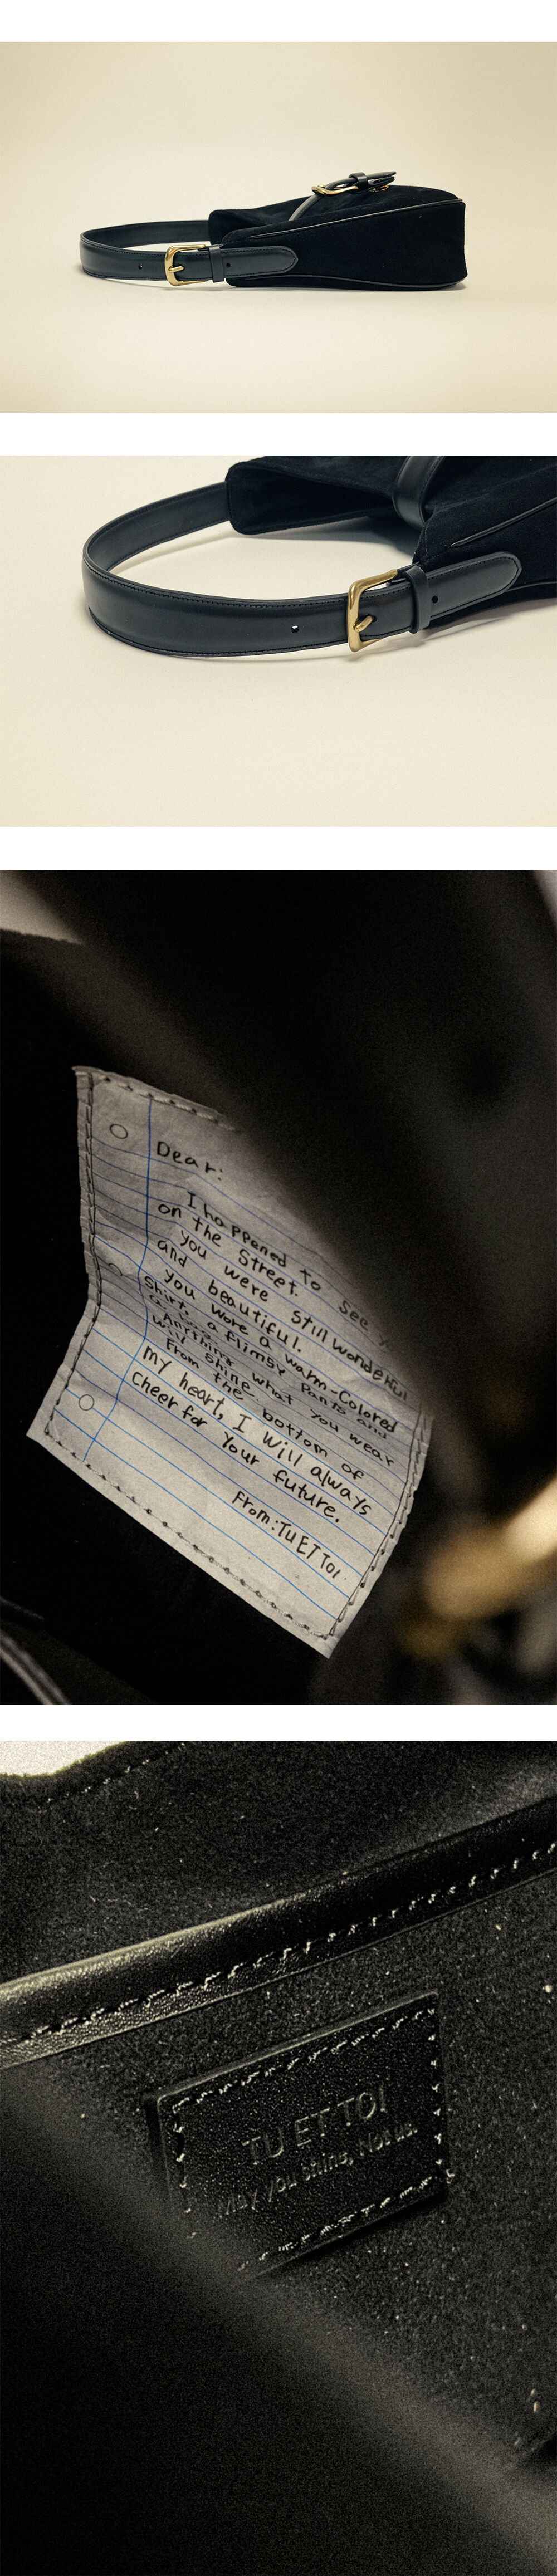 Dear:
I happened to see
on the street.
you were still wonderful
and beautiful.
you wore a warm-colored
shirt, a flimsy pants and
Anything what you wear
will shine
From the bottom of
my heart, I will always
Cheer for your future.
From:TUETTOI
TU ET TOI
May you shine, Not us.